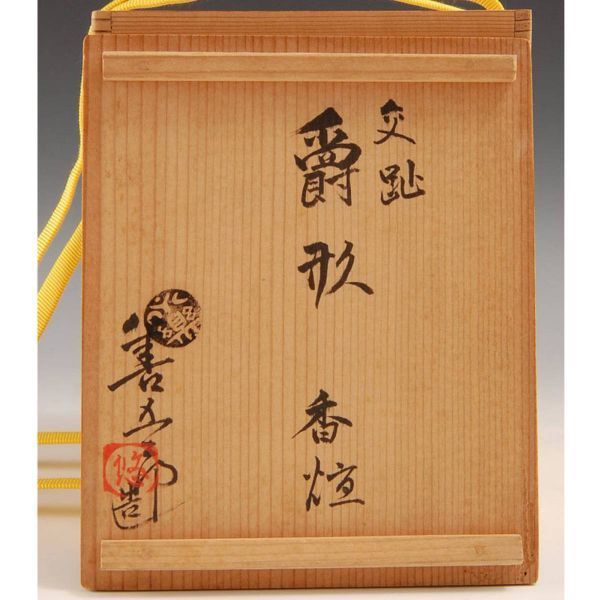 交趾
爵形 香爐
善五郎造